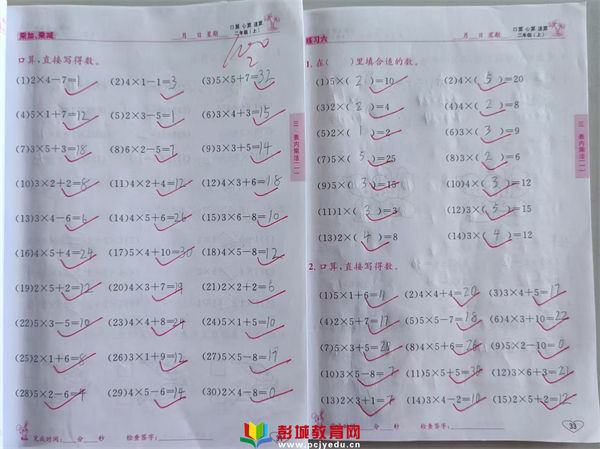 乘加、乘减
月 日 星期
口算 心算 速算
二年级(上)
100
2
口算,直接写得数。
(1)2×4-7=1 (2)4×1-1=3 (3)5×5+7=32
(4)5×1+7=12 (5)2×3-5=1 (6)4×3+3=15
(7)3×5+3=18 (8)6×2-5=7 (9)3×3+5=14
(10)3×2+2=8 (11)4×2+4=12 (12)4×3+6=18
(13)3×4-6=6 (14)4×5+6=26 (15)3×6-8=10
(16)4×5+4=24 (17)5×4+10=30 (18)4×5-8=12
(19)2×5+2=12 (20)4×3+7=19 (21)2×2+2=6
(22)5×3-5=10 (23)4×4+8=24 (24)5×1+5=10
(25)2×1+6=8 (26)3×1+9=12 (27)5×5-8=17
(28)5×2-6=4 (29)4×5-6=14 (30)2×4-8=0
完成时间: 分 秒 检查签字:
三 表内乘法(一)
练习六
月 日 星期
口算 心算 速算
二年级(上)
1. 在( )里填合适的数。
(1)5×(2)=10 (2)4×(5)=20
(3)2×(2)=4 (4)4×(2)=8
(5)2×(1)=2 (6)3×(3)=9
(7)5×(5)=25 (8)3×(2)=6
(9)5×(3)=15 (10)4×(3)=12
(11)1×(3)=3 (12)3×(5)=15
(13)2×(4)=8 (14)3×(4)=12
2. 口算,直接写得数。
(1)5×1+6=11 (2)4×4+4=20 (3)3×4+5=17
(4)2×5+7=17 (5)5×5-7=18 (6)4×3+10=22
(7)5×3+5=20 (8)4×5+6=26 (9)5×2-10=0
(10)3×5-8=7 (11)5×5+5=30 (12)3×6+3=21
(13)2×3+1=7 (14)3×4-2=10 (15)2×5+2=12
完成时间: 分 秒 检查签字:
33
三 表内乘法(一)
彭城教育网
www.pcjyedu.cn